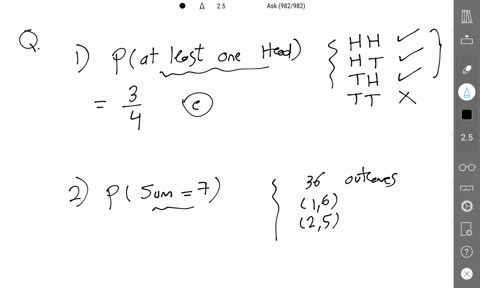 2.5 Ask (982/982)
Q.
1) P(at least one Head)
= 3/4 (c)
HH ✓
HT ✓
TH ✓
TT ✗
2) P(Sum = 7)
36 outcomes
(1,6)
(2,5)
2.5